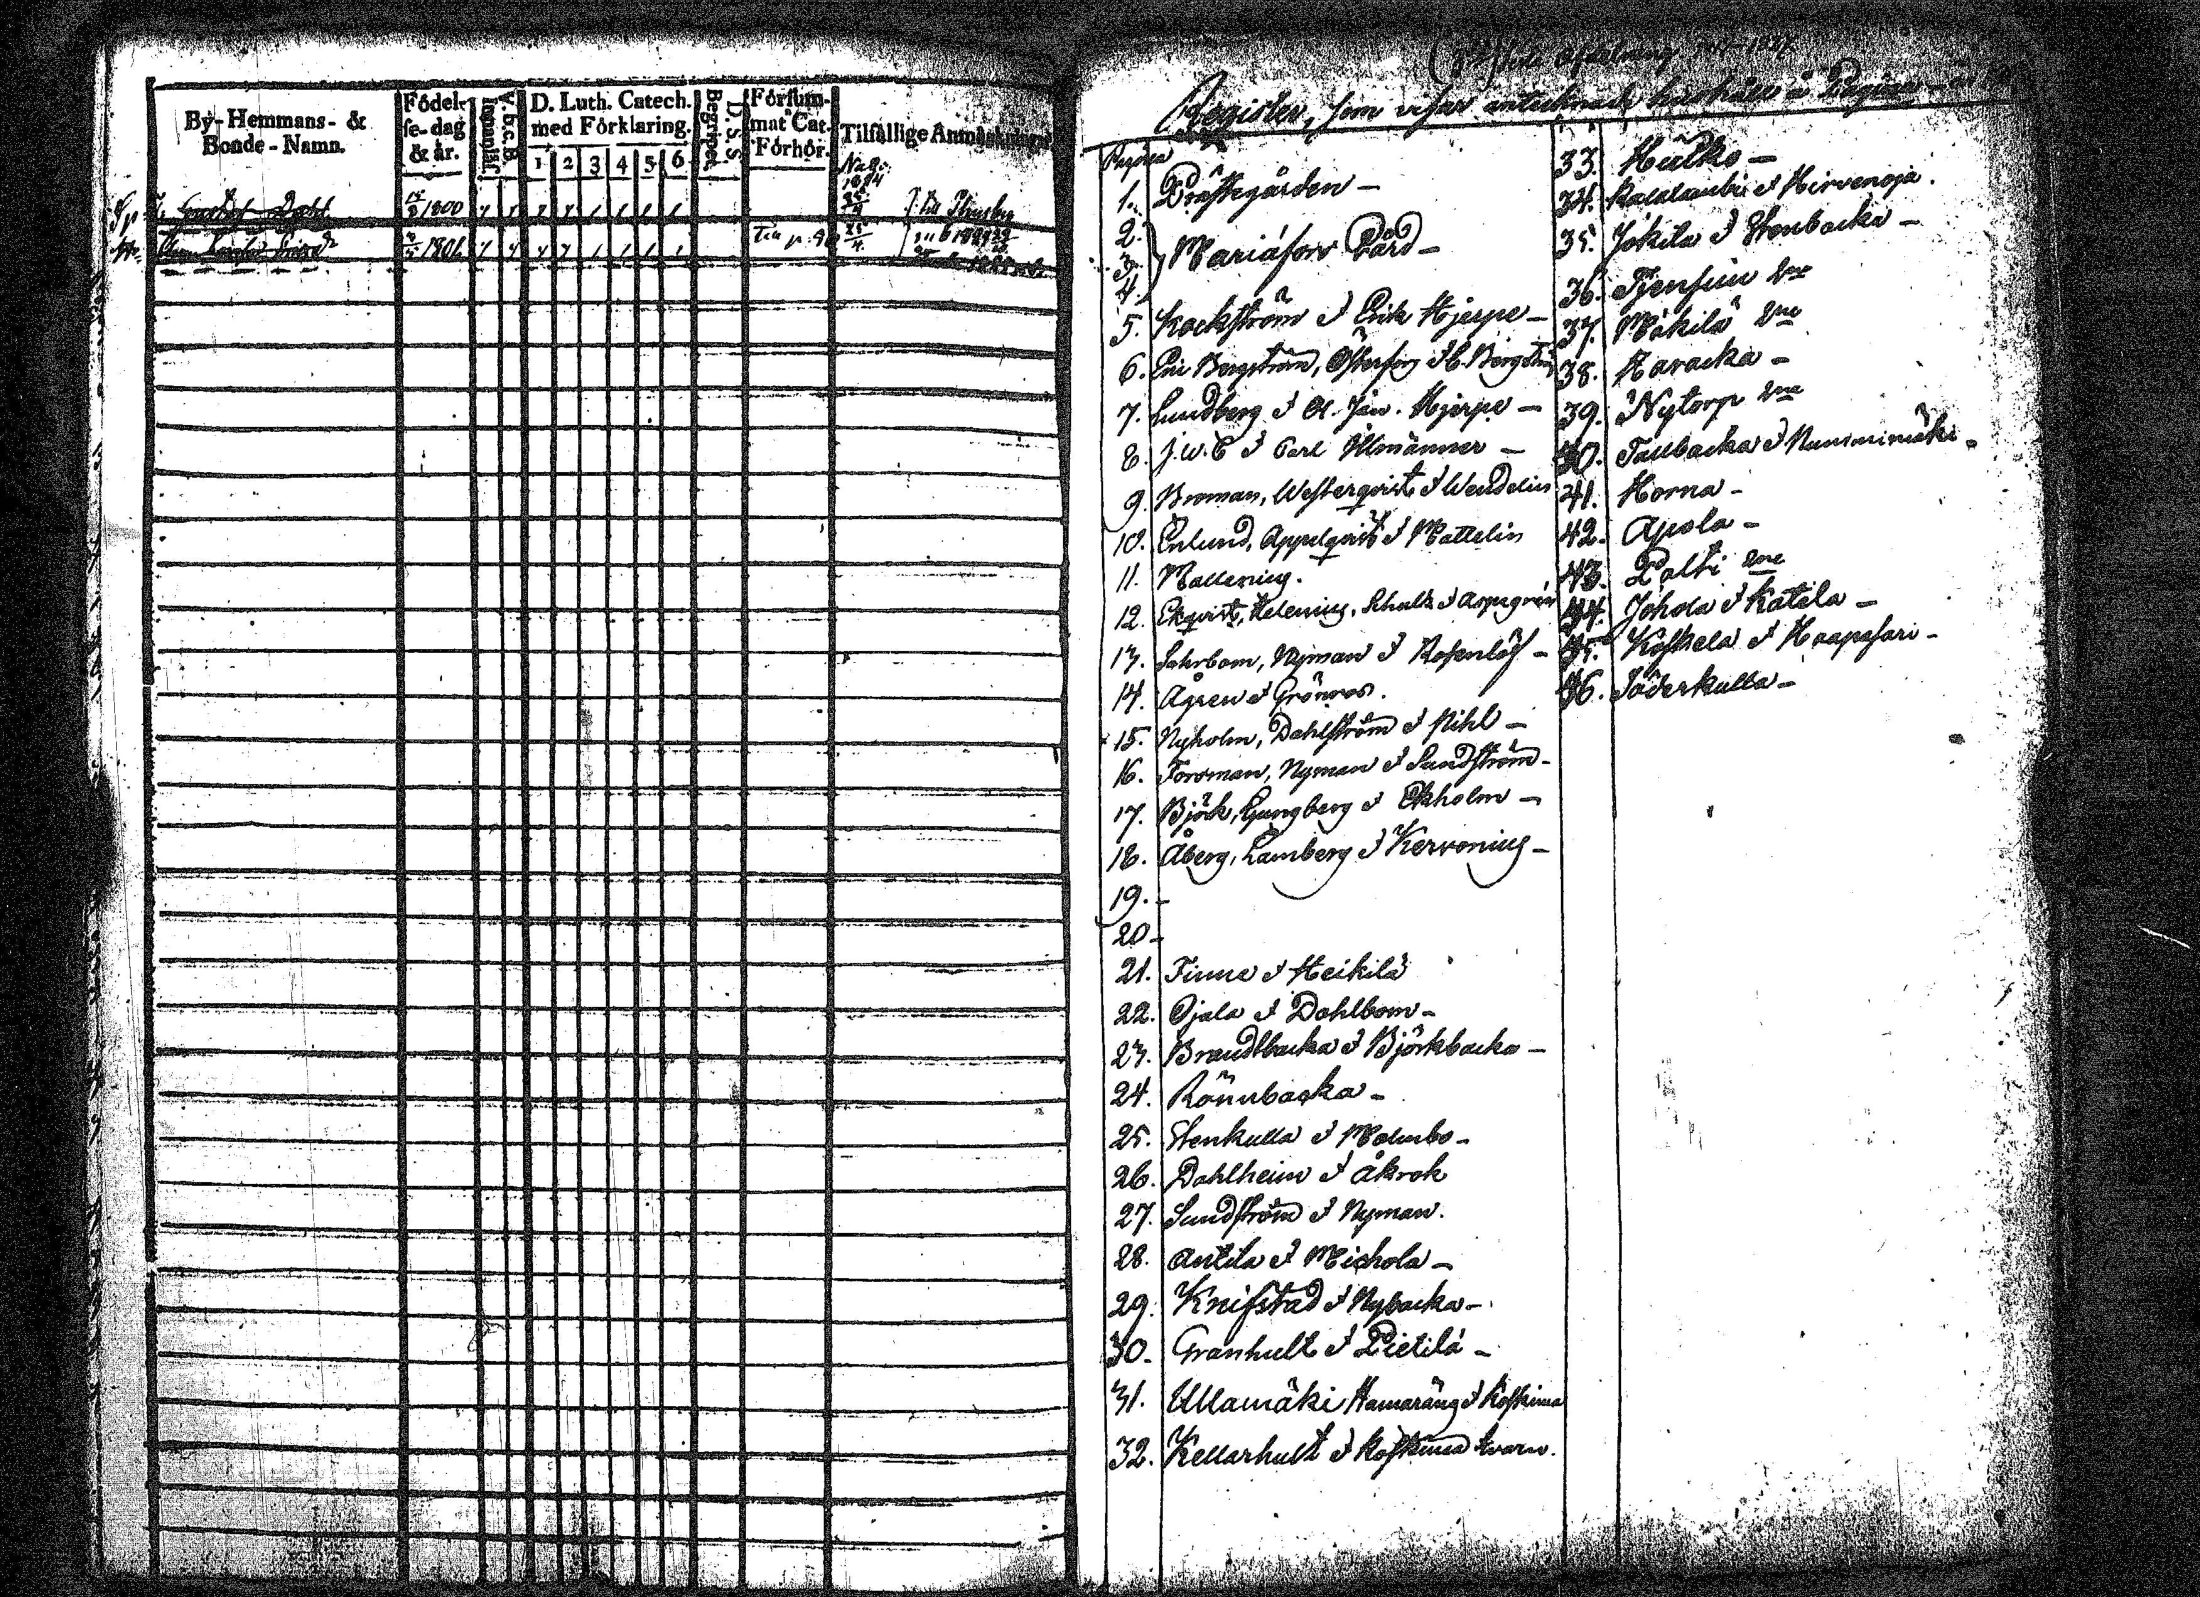 By-Hemmans- & Bonde-Namn.
Födel-se-dag & år.
Innanläs.
A. b. c. B.
D. Luth. Catech. med Förklaring.
1 2 3 4 5 6
Begripet
D. S. S.
Försum-mat Cat. Förhör.
Tillfällige Anmärkningar
1800
1801
Register, som visar antecknade hushålle å Pagina
Pagina
1. Prästegården -
2.
3. Mariæfors Gård -
4.
5. Kockström & Erik Hjerpe -
6. Eric Bergström, Österforg & C. Bergström
7. Lundberg & Joh. Hjerpe -
8. J. W. C & Carl Ulmanner -
9. Broman, Westerqvist & Wendelin
10. Enlund, Appelqvist & Mattelin
11. Mallenius.
12. Ekqvist, Helenius, Schultz & Aspegrén
13. Sahrbom, Nyman & Rosenlöf -
14. Ågren & Grönroos.
15. Nyholm, Dahlström & Pihl -
16. Forsman, Nyman & Sundström -
17. Björk, Ljungberg & Ekholm -
18. Åberg, Lamberg & Kervonius -
19. -
20 -
21. Finne & Heikilä
22. Ojala & Dahlbom -
23. Brandtbacka & Björkbacka -
24. Rönnbacka -
25. Stenkulla & Malmbo -
26. Dahlheim & Åkrok
27. Sundström & Nyman.
28. Antila & Michola -
29. Knifstad & Nybacka -
30. Granhult & Pietilä -
31. Ullamäki Hamaräng & Koskima
32. Kellarhult & Koskima kvarn.
33. Hulko -
34. Kalalambi & Hirvenoja.
35. Jokila & Stenbacka -
36. Tjensuu 2ne
37. Mäkilä 2ne
38. Haracka -
39. Nytorp 2ne
40. Tallbacka & Nummimäki -
41. Horna -
42. Apola -
43. Palti 2ne
44. Johola & Katila -
45. Koskela & Haapasari -
46. Söderkulla -